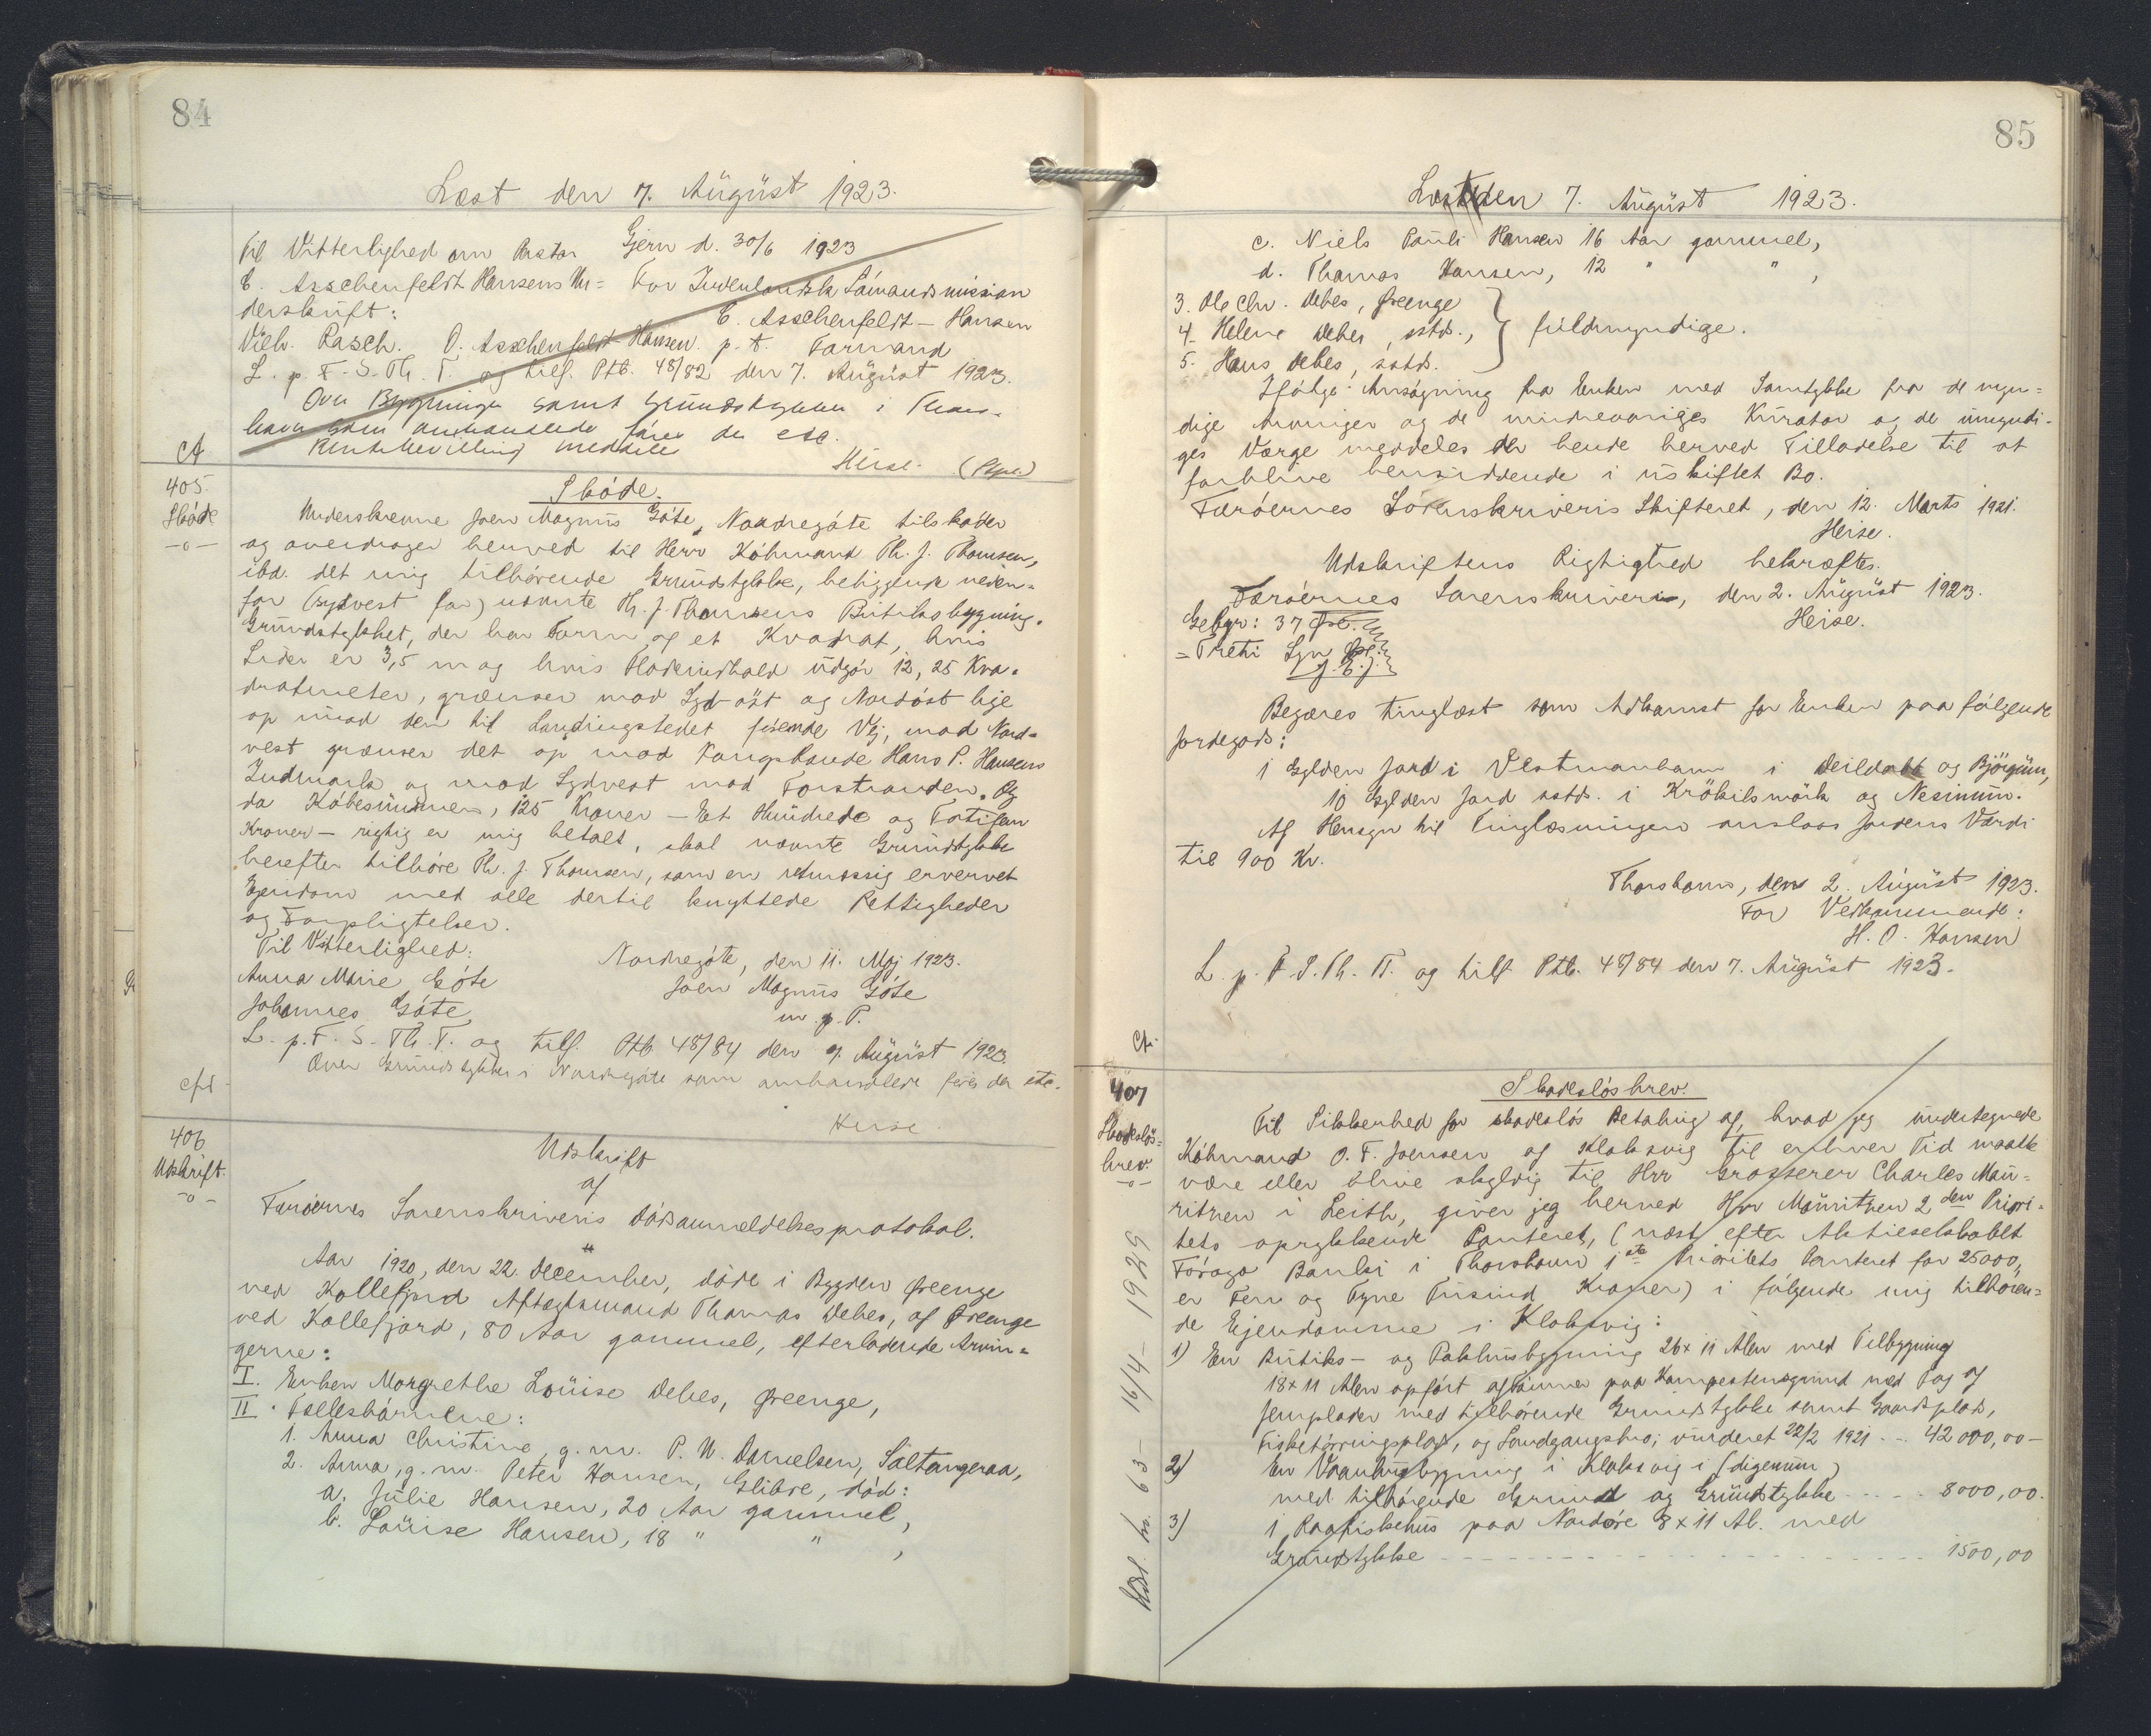 84
Læst den 7. August 1923.
Til Vitterlighed om Pastor Gjern d. 30/6 1923
C. Asschenfeldt Hansens Un= For Indenlandsk Sømandsmission
derskrift: C. Asschenfeldt-Hansen
Vilh. Rasch. O. Asschenfeldt Hansen. p. t. Formand
L. p. F. S. Th. T. og tilf. Ptb. 48/82 den 7. August 1923.
Over Bygninger samt Grundstykker i Thors-
havn som omhandlede føres der etc.
meddelt
Heise.
405.
Skøde
-o-
Skøde.
Underskrevne Joen Magnus Gøte, Nordregøte tilskøder
og overdrager herved til Herr Købmand Th. J. Thomsen,
ibd. det mig tilhørende Grundstykke, beliggende neden-
for (sydvest for) nævnte Th. J. Thomsens Butiksbygning.
Grundstykket, der har Form af et Kvadrat, hvis
Sider er 3,5 m og hvis Fladeindhold udgør 12,25 Kva-
dratmeter, grænser mod Syd-øst og Nordøst lige
op imod den til Landingstedet førende Vej, mod Nord-
vest grænser det op mod Kongsbonde Hans P. Hansens
Indmark og mod Sydvest mod Forstranden. Og
da Købesummen, 125 Kroner - Et Hundrede og Fotifem
Kroner - rigtig er mig betalt, skal nævnte Grundstykke
herefter tilhøre Th. J. Thomsen, som en retmæssig erhvervet
Ejendom med alle dertil knyttede Rettigheder
og Forpligtelser.
Til Vitterlighed: Nordregøte, den 11. Maj 1923.
Anna Marie Gøte Joen Magnus Gøte
Johannes Gøte m. p. P.
L. p. F. S. Th. T. og tilf. Ptb 48/84 den 7. August 1923.
Over Grundstykke i Nordregøte som omhandlede føres der etc.
Heise.
406
Udskrift
-o-
Udskrift
af
Færøernes Sorenskriveris Dødsanmeldelsesprotokol.
Aar 1920, den 22. December, døde i Bygden Øreenge
ved Kollefjord Aftægtsmand Thomas Debes, af Øreenge
ved Kollefjord, 80 Aar gammel, efterladende Arvin-
gerne:
I. Enken Morgrethe Louise Debes, Øreenge,
II. Fællesbørnene:
1. Anna Christine, g. m. P. W. Danielsen, Saltangeraa,
2. Anna, g. m. Peter Hansen, Glibre, død:
a. Julie Hansen, 20 Aar gammel,
b. Louise Hansen, 18 " " ,
85
Læst den 7. August 1923.
c. Niels Pauli Hansen 16 Aar gammel,
d. Thomas Hansen, 12 " " ,
3. Ole Chr. Debes, Øreenge
4. Helene Debes, sstds., fuldmyndige.
5. Hans Debes, sstds.
Ifølge Ansøgning fra Enken med Samtykke fra de myn-
dige Arvinger og de mindreaariges Kurator og de umyndi-
ges Værge meddeles der hende herved Tilladelse til at
forblive hensiddende i uskiftet Bo.
Færøernes Sorenskriveris Skifteret, den 12. Marts 1921.
Heise.
Udskriftens Rigtighed bekræftes.
Færøernes Sorenskriveri, den 2. August 1923.
Gebyr: 37 Øre. Heise.
= Treti Syv Øre.
Begæres tinglæst som Adkomst for Enken paa følgende
Jordegods:
1 Gylden Jord i Vestmanhavn i Deildabb og Björgum,
10 Gylden Jord sstds. i Krökilsmörk og Nesinum.
Af Hensyn til Tinglæsningen anslaas Jordens Værdi
til 900 Kr.
Thorshavn, den 2. August 1923.
For Vedkommende:
H. O. Hansen
L. p. F. S. Th. T. og tilf Ptb. 48/84 den 7. August 1923.
407
Skadesløs=
brev.
-o-
Skadesløsbrev.
Til Sikkerhed for skadesløs Betaling af, hvad jeg undertegnede
Købmand O. F. Joensen af Klaksvig til enhver Tid maatte
være eller blive skyldig til Hrr Grosserer Charles Mau-
ritzen i Leith, giver jeg herved Hrr Mauritzen 2den Priori-
tets oprykkende Panteret, (næst efter Aktieselskabet
Føroya Banki i Thorshavn 1ste Prioritets Panteret for 25000,
er Fem og Tyve Tusind Kroner) i følgende mig tilhøren=
de Ejendomme i Klaksvig:
1) En Butiks- og Pakhusbygning 26 x 11 Alen med Tilbygning
18 x 11 Alen opført af Tømmer paa Kampestensgrund med Tag af
Jernplader med tilhørende Grundstykke samt Gaardsplads,
Fisketørringsplads, og Landgangsbro; vurderet 22/2 1921 .. 42000,00-
2) En Vaaningsbygning i Klaksvig i (digenum)
med tilhørende Grund og Grundstykke ..... 8000,00.
3) 1 Raafiskehus paa Nordøre 8 x 11 Al. med
Grundstykke ..... 1500,00
63 - 16/4 - 1929